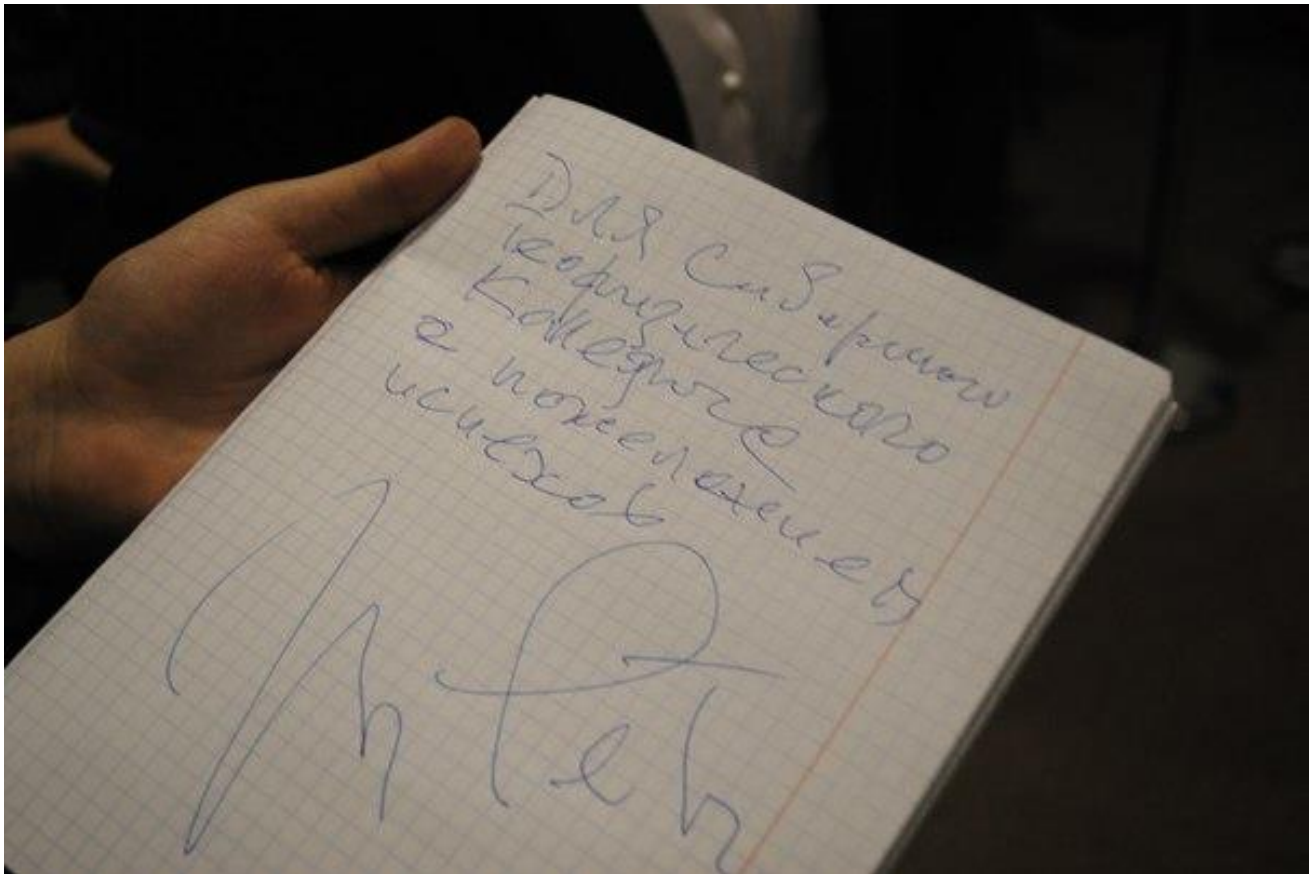 Для Сибирского
Юридического
Колледжа
с пожеланием
успехов